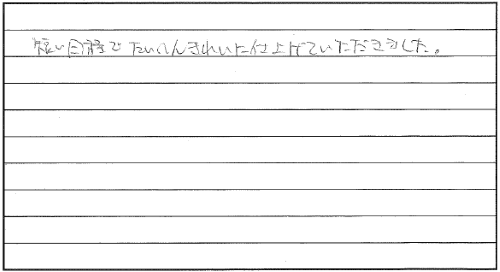 短い日程で たいへんきれいに仕上げていただきました。